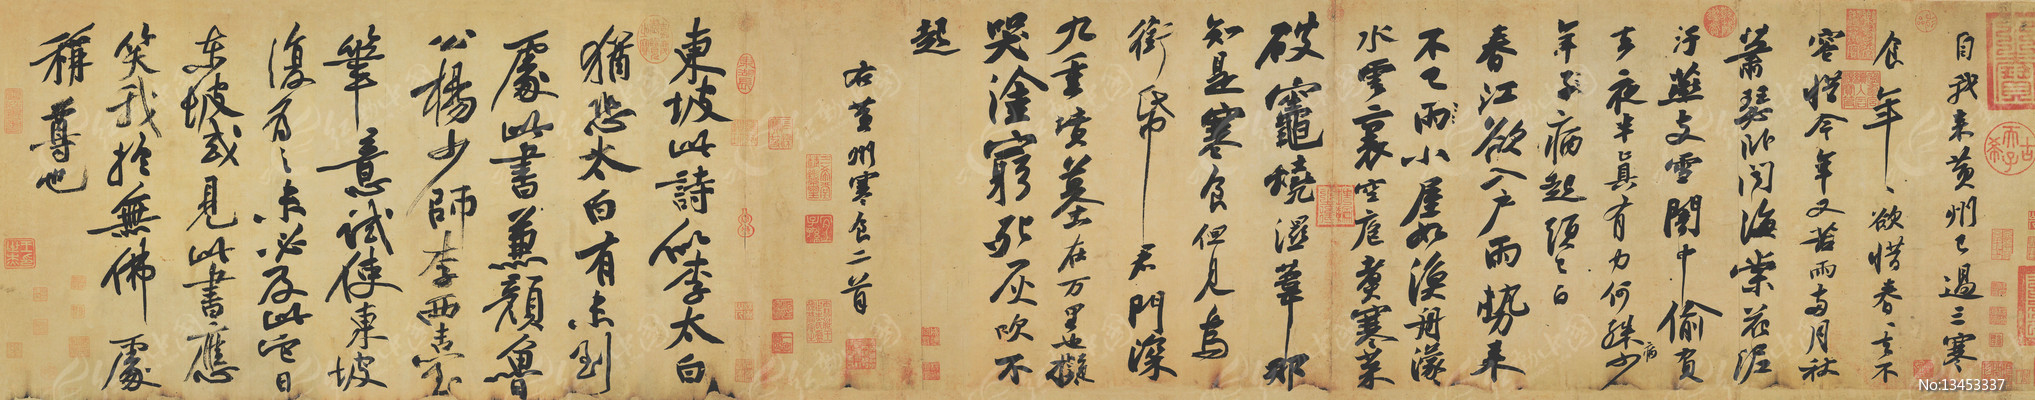 自我来黄州已過三寒
食年〻欲惜春〻去不
容惜今年又苦雨兩月秋
蕭瑟卧聞海棠花泥
汙燕支雪闇中偷負
去夜半真有力何殊少
病
年子病起頭已白
春江欲入户雨勢来
不已雨小屋如漁舟濛〻
水雲裏空庖煮寒菜
破竈燒濕葦那
知是寒食但見烏
銜帋君門深
九重墳墓在万里也擬
哭塗窮死灰吹不
起
右黄州寒食二首
東坡此詩似李太白
猶恐太白有未到
處此書兼顏魯
公楊少師李西臺
筆意試使東坡
復為之未必及此它日
東坡或見此書應
笑我於無佛處
稱尊也
No:13453337